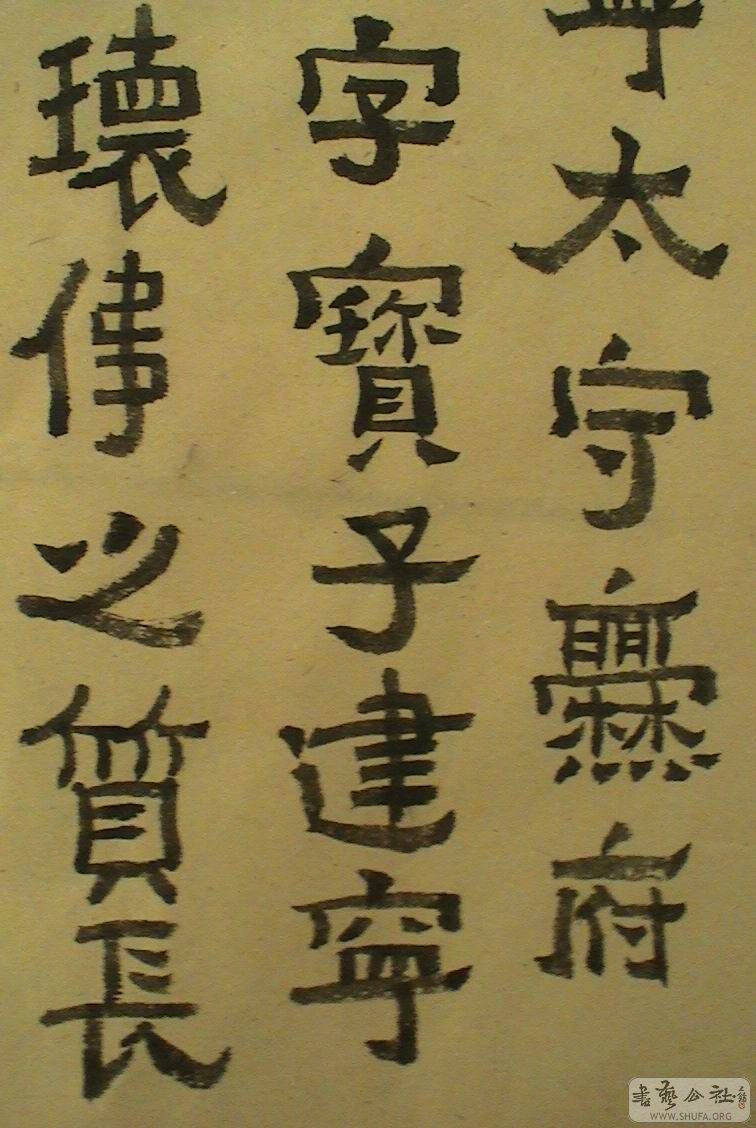 太守爨府
字寶子建寧
瓌偉之質長
書藝公社
WWW.SHUFA.ORG